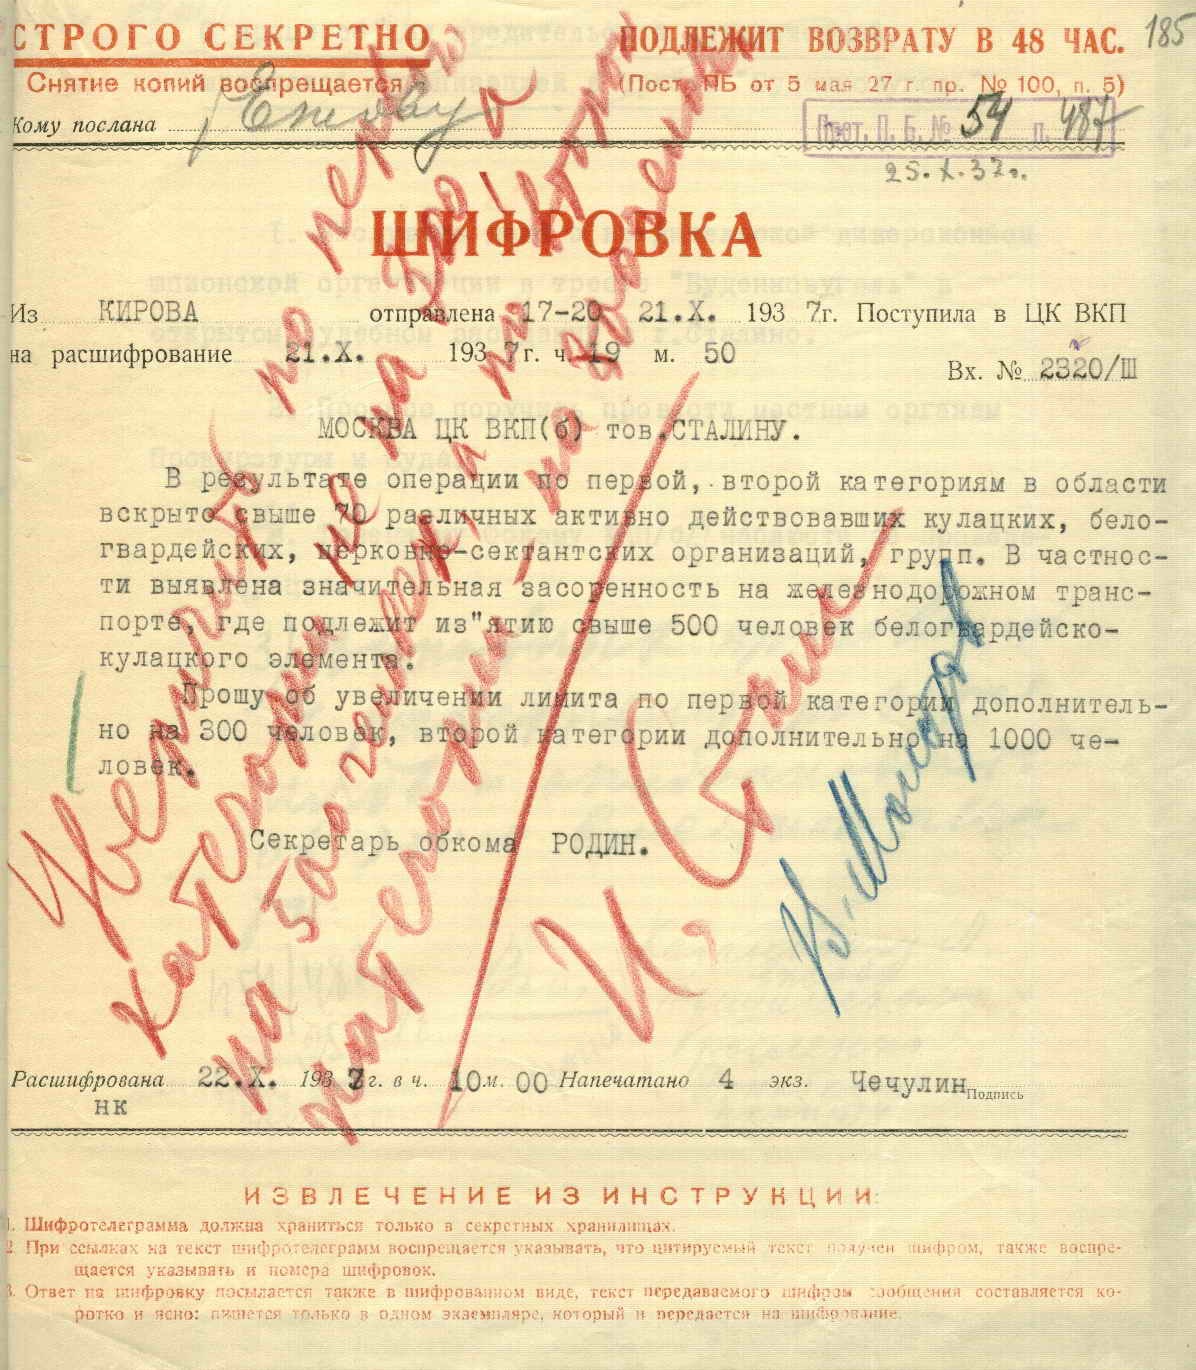 СТРОГО СЕКРЕТНО
ПОДЛЕЖИТ ВОЗВРАТУ В 48 ЧАС.
185
Снятие копий воспрещается
(Пост. ПБ от 5 мая 27 г. пр. № 100, п. 5)
Кому послана Ежову
Прот. П. Б. № 54 п. 487
25.X.37г.
ШИФРОВКА
Из КИРОВА отправлена 17-20 21.X. 1937г. Поступила в ЦК ВКП
на расшифрование 21.X. 1937г. ч. 19 м. 50
Вх. № 2320/Ш
МОСКВА ЦК ВКП(б) тов.СТАЛИНУ.
В результате операции по первой, второй категориям в области
вскрыто свыше 70 различных активно действовавших кулацких, бело-
гвардейских, церковно-сектантских организаций, групп. В частнос-
ти выявлена значительная засоренность на железнодорожном транс-
порте, где подлежит из"ятию свыше 500 человек белогвардейско-
кулацкого элемента.
Прошу об увеличении лимита по первой категории дополнитель-
но на 300 человек, второй категории дополнительно на 1000 че-
ловек.
Секретарь обкома РОДИН.
Увеличить по первой
категории не на 300, а
на 500 человек, а по второй
категории – на 800 человек
И. Сталин
В. Молотов
Расшифрована 22.X. 1937г. в ч. 10 м. 00 Напечатано 4 экз. Чечулин
Подпись
нк
ИЗВЛЕЧЕНИЕ ИЗ ИНСТРУКЦИИ:
1. Шифротелеграмма должна храниться только в секретных хранилищах.
2. При ссылках на текст шифротелеграмм воспрещается указывать, что цитируемый текст получен шифром, также воспре-
щается указывать и номера шифровок.
3. Ответ на шифровку посылается также в шифрованном виде, текст передаваемого шифром сообщения составляется ко-
ротко и ясно: пишется только в одном экземпляре, который и передается на шифрование.